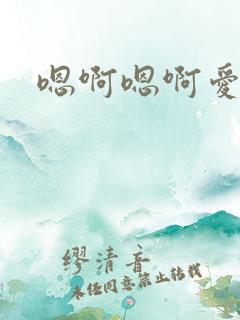 嗯啊嗯啊爱
缪清音
未经同意禁止转载